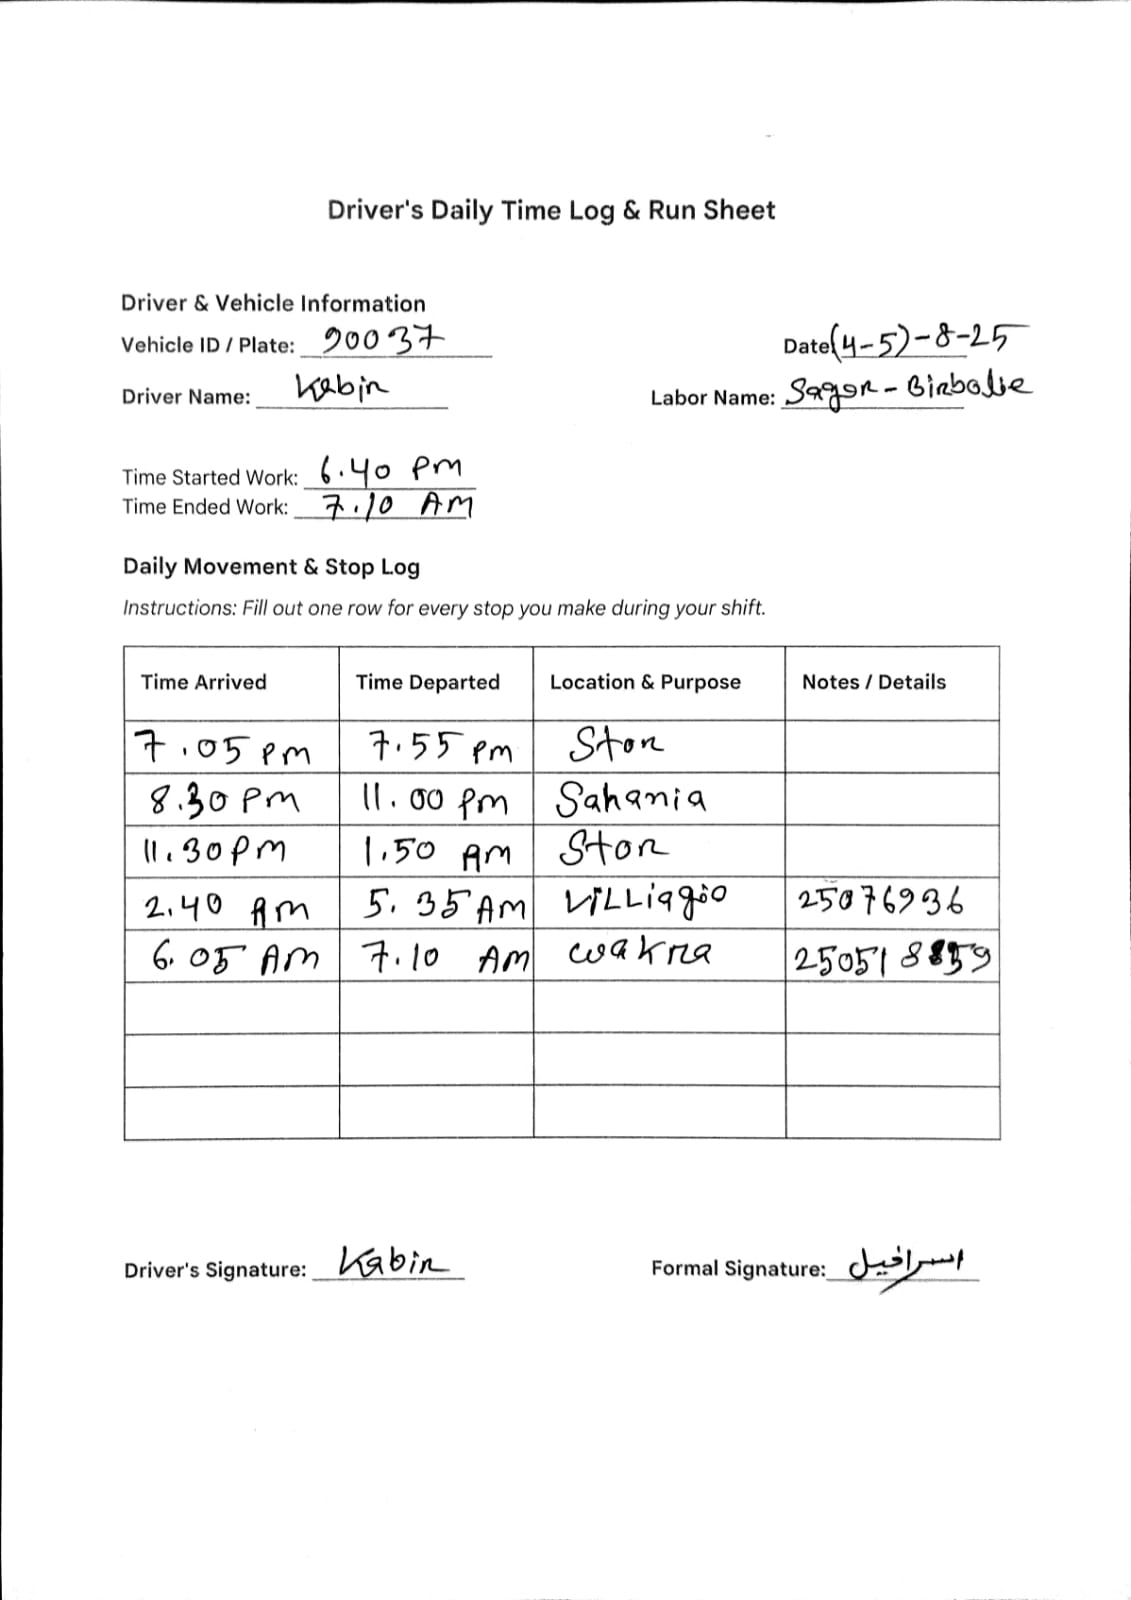 Driver's Daily Time Log & Run Sheet
Driver & Vehicle Information
Vehicle ID / Plate: 90037
Date: (4-5)-8-25
Driver Name: Kabir
Labor Name: Sagor - Birbalse
Time Started Work: 6.40 PM
Time Ended Work: 7.10 AM
Daily Movement & Stop Log
Instructions: Fill out one row for every stop you make during your shift.
Time Arrived Time Departed Location & Purpose Notes / Details
7.05 pm 7.55 pm Stor
8.30 pm 11.00 pm Sahania
11.30 pm 1.50 AM Stor
2.40 AM 5.35 AM ViLLiaggio 25076936
6.05 AM 7.10 AM wakra 250518
Driver's Signature: Kabir
Formal Signature: اسرافيل